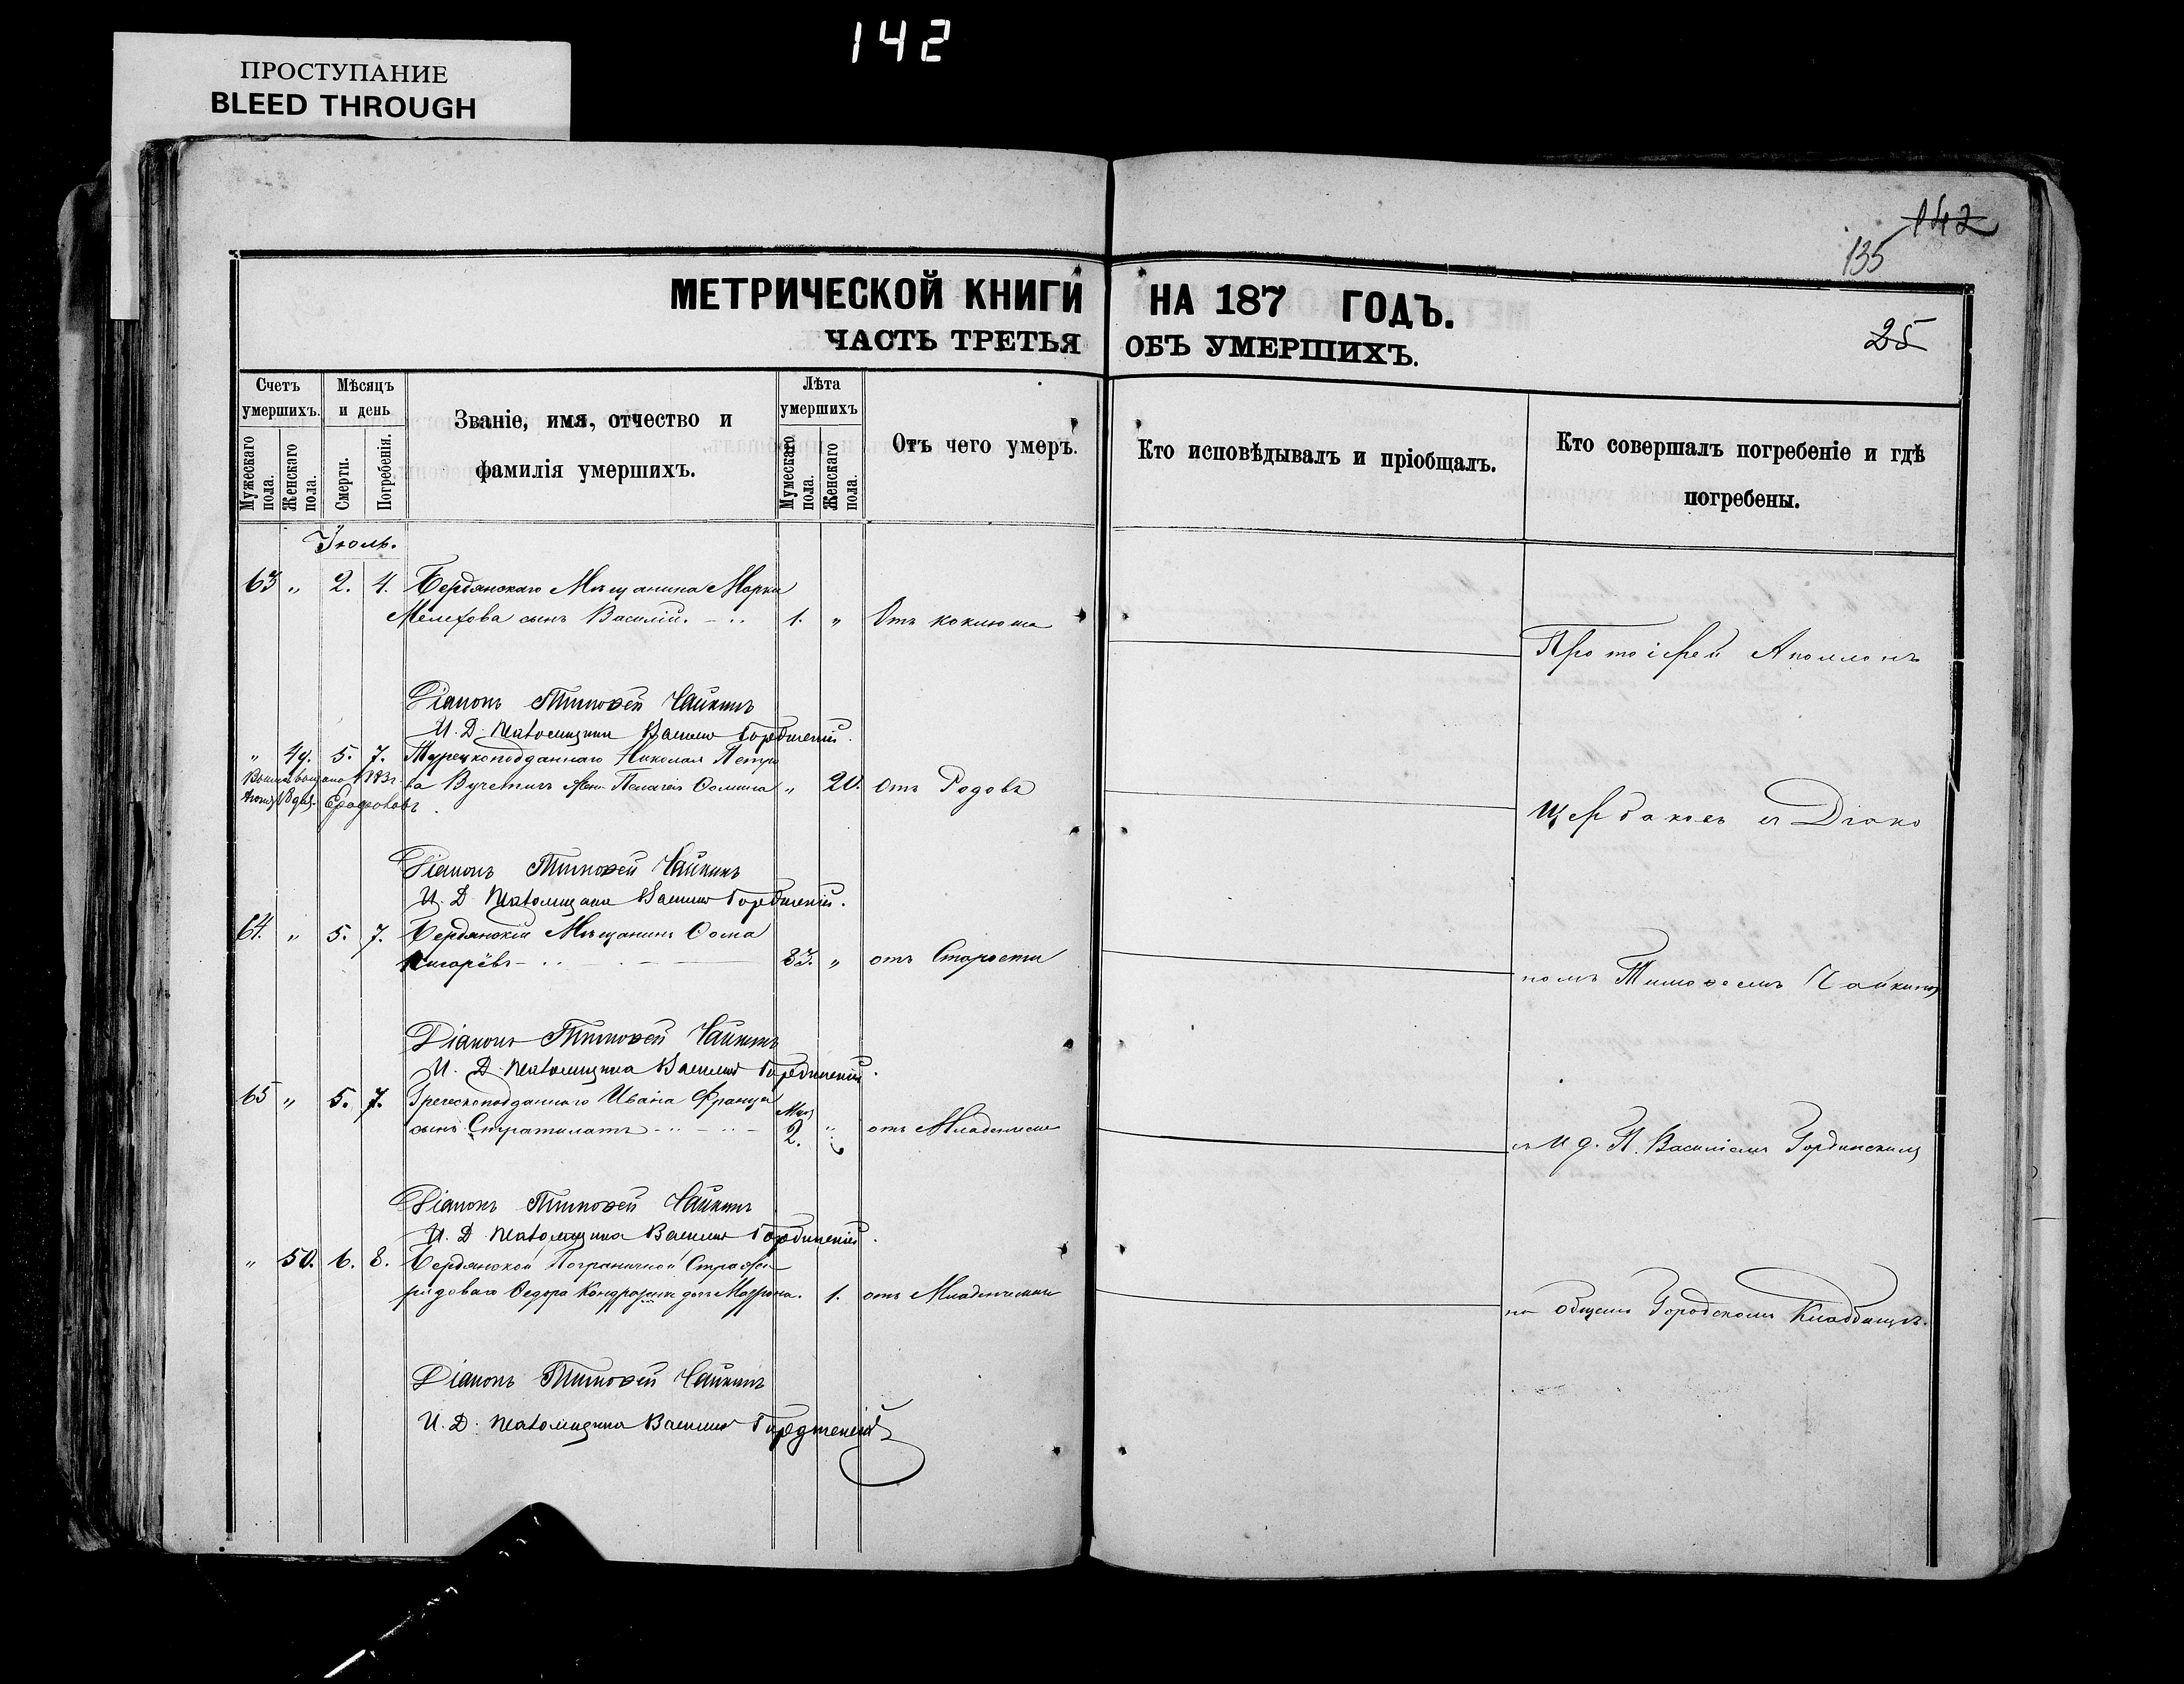 142
ПРОСТУПАНИЕ
BLEED THROUGH
142
135
МЕТРИЧЕСКОЙ КНИГИ НА 187 ГОДЪ.
ЧАСТЬ ТРЕТЬЯ ОБЪ УМЕРШИХЪ.
25
Счетъ умершихъ.
Мужескаго пола.
Женскаго пола.
Мѣсяцъ и день
Смерти.
Погребенія.
Званіе, имя, отчество и фамилія умершихъ.
Лѣта умершихъ
Мужескаго пола.
Женскаго пола.
Отъ чего умеръ.
Кто исповѣдывалъ и пріобщалъ.
Кто совершалъ погребеніе и гдѣ погребены.
Іюль.
63 " 2. 4. Бердянскаго Мѣщанина Марка
Мелехова сынъ Василій. 1. " Отъ коклюша
Протоіерей Аполлонъ
Діаконъ Тимоѳей Чайкинъ
И. Д. Псаломщика Василий Гординскій.
" 49. 5. 7. Турецкоподданнаго Николая Петро
ва Вучетича жена Пелагея Ѳомина " 20. Отъ Родовъ
Щербаковъ съ Діако
Діаконъ Тимоѳей Чайкинъ
И. Д. Псаломщика Василий Гординскій.
64. " 5. 7. Бердянскій Мѣщанинъ Ѳома
83. " отъ Старости
номъ Тимоѳеемъ Чайкинымъ
Діаконъ Тимоѳей Чайкинъ
И. Д. Псаломщика Василий Гординскій.
65 " 5. 7. Греческоподданнаго Ивана Франца
сынъ Стратилатъ 2. " отъ Младенческ
и И д. П. Василіемъ Гординскимъ
Діаконъ Тимоѳей Чайкинъ
И. Д. Псаломщика Василий Гординскій.
" 50. 6. 8. Бердянской Пограничной Стражи
рядоваго Ѳедора дочь Матрона. 1. отъ Младенческой
на общемъ Городскомъ Кладбищѣ.
Діаконъ Тимоѳей Чайкинъ
И. Д. Псаломщика Василий Гординскій